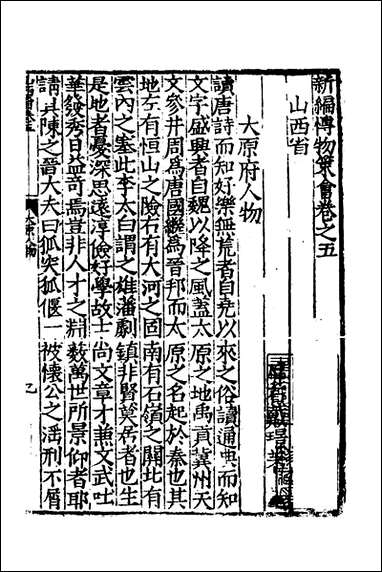 新編博物策會卷之五
山西省
太原府人物
讀唐詩而知好樂無荒者自堯以來之俗讀通典而知
文字盛興者自魏以降之風蓋太原之地禹貢冀州天
文參井周為唐國繼為晉邦而太原之名起於秦也其
地左有恒山之險右有大河之固南有石嶺之關北有
雲內之塞此李太白謂之雄藩劇鎮非賢莫居者也生
是地者憂深思遠淳儉好學故士尚文章才兼文武吐
華發秀日益奇焉豈非人才之淵藪萬世所景仰者耶
請具陳之晉大夫曰狐突狐偃一被懷公之淫刑不屑